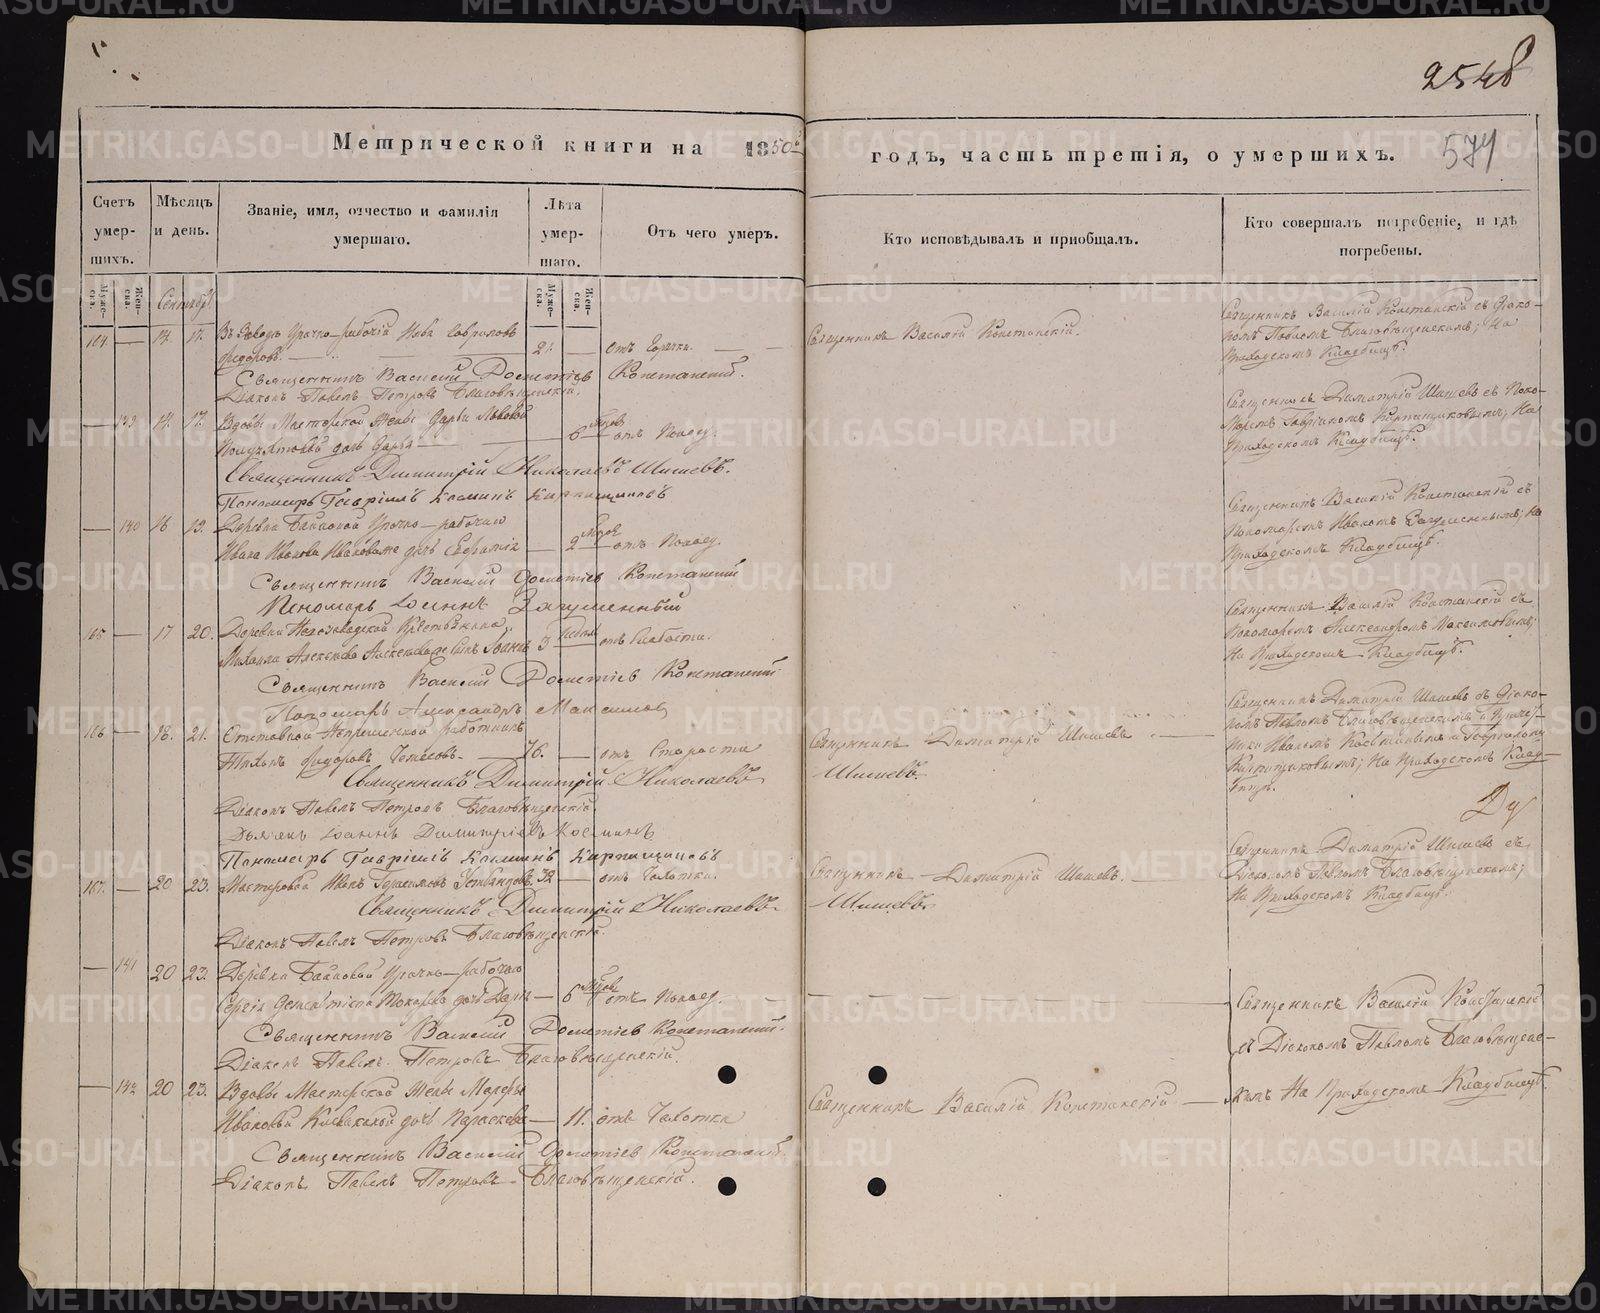 2548
574
Метрической книги на 1850й годъ, часть третія, о умершихъ.
Счетъ умер-шихъ.
Мѣсяцъ и день.
Званіе, имя, отчество и фамилія умершаго.
Лѣта умер-шаго.
Отъ чего умеръ.
Кто исповѣдывалъ и приобщалъ.
Кто совершалъ погребеніе, и гдѣ погребены.
Муже-ска.
Жен-ска.
Муже-ска.
Жен-ска.
Сентябрь
164. — 14. 17. Въ Заводѣ Урочно-рабочій
Федоровъ. — 21. — отъ Горячки.
Священникъ Василій Конетанскій.
Священникъ Василій Конетанскій съ Діако-
номъ Павломъ Благовѣщенскимъ; На
Приходскомъ Кладбищѣ.
Священникъ Василій Дометіевъ Конетанскій.
Діаконъ Павелъ Петровъ Благовѣщенскій.
— 139 14. 17. Вдовы Мастерской Жены Дарьи Львовой
дочь Дарья — 6 Мѣсяц. отъ Поносу.
Священникъ Димитрій Шишевъ съ Поно-
маремъ Гавріиломъ Кирпищиковымъ; На
Приходскомъ Кладбищѣ.
Священникъ Димитрій Николаевъ Шишевъ.
Пономарь Гавріилъ Косминъ Кирпищиковъ
— 140 16 19. Деревни Баиновой Урочно-рабочаго
Ивана Иванова дочь — 2 отъ Поносу.
Священникъ Василій Конетанскій съ
Пономаремъ Иваномъ Загуменнымъ; на
Приходскомъ Кладбищѣ.
Священникъ Василій Дометіевъ Конетанскій
Пономарь Іоаннъ Загуменный
165 — 17 20. Деревни крестьянина
Михаила Алексѣева сынъ Іоаннъ 3 отъ Слабости.
Священникъ Василій Конетанскій съ
Пономаремъ Александромъ Максимовымъ;
На Приходскомъ Кладбищѣ.
Священникъ Василій Дометіевъ Конетанскій
Пономарь Александръ Максимовъ
166 — 18. 21. Отставной Непремѣнной работникъ
Тихонъ Федоровъ — 76. — отъ Старости
Священникъ Димитрій Шишевъ
Шишевъ.
Священникъ Димитрій Шишевъ съ Діако-
номъ Павломъ Благовѣщенскимъ и Причет-
никами Иваномъ Косминымъ и Гавріиломъ
Кирпищиковымъ; На Приходскомъ Клад-
бищѣ.
Священникъ Димитрій Николаевъ
Діаконъ Павелъ Петровъ Благовѣщенскій.
Дьячекъ Іоаннъ Димитріевъ Косминъ
Пономарь Гавріилъ Косминъ Кирпищиковъ
167. — 20 23. Мастеровой Иванъ Герасимовъ 32 — отъ Чахотки.
Священникъ Димитрій Шишевъ.
Шишевъ.
Священникъ Димитрій Шишевъ съ
Діакономъ Павломъ Благовѣщенскимъ;
На Приходскомъ Кладбищѣ.
Священникъ Димитрій Николаевъ
Діаконъ Павелъ Петровъ Благовѣщенскій.
— 141 20 23. Деревни Баиновой Урочно-рабочаго
Сергія Токарева дочь Дарья — 6 Мѣсяц. отъ Поносу.
Священникъ Василій Конетанскій
съ Діакономъ Павломъ Благовѣщенс-
кимъ На Приходскомъ Кладбищѣ.
Священникъ Василій Дометіевъ Конетанскій.
Діаконъ Павелъ Петровъ Благовѣщенскій.
— 142 20 23. Вдовы Мастерской Жены
Ивановой дочь Параскева — 11. отъ Чахотки
Священникъ Василій Конетанскій
Священникъ Василій Дометіевъ Конетанскій.
Діаконъ Павелъ Петровъ Благовѣщенскій.
METRIKI.GASO-URAL.RU